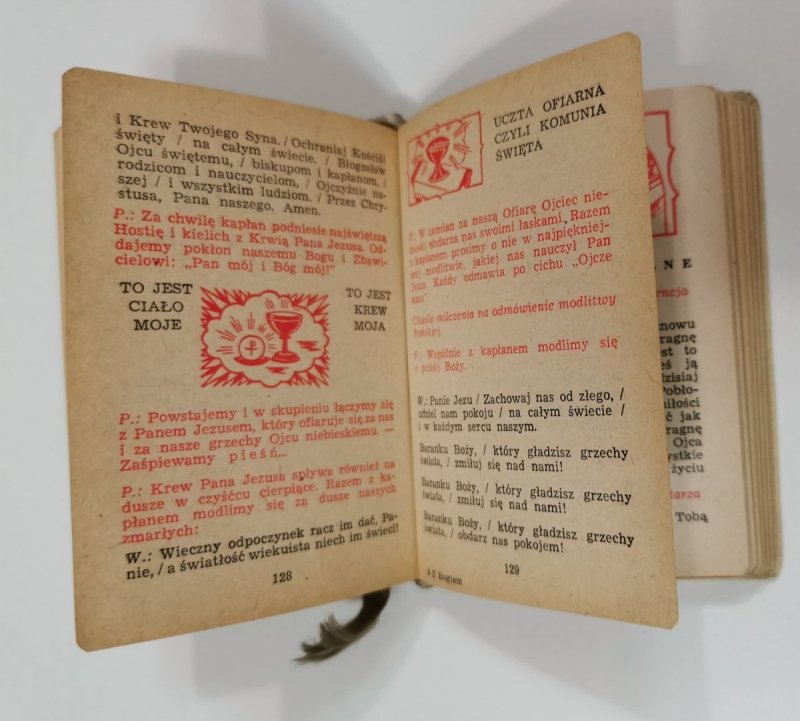 i Krew Twojego Syna. / Ochraniaj Kościół
święty / na całym świecie. / Błogosław
Ojcu świętemu, / biskupom i kapłanom, /
rodzicom i nauczycielom, / Ojczyźnie na-
szej / i wszystkim ludziom. / Przez Chry-
stusa, Pana naszego. Amen.
P.: Za chwilę kapłan podniesie najświętszą
Hostię i kielich z Krwią Pana Jezusa. Od-
dajemy pokłon naszemu Bogu i Zbawi-
cielowi: „Pan mój i Bóg mój!"
TO JEST
CIAŁO
MOJE
TO JEST
KREW
MOJA
P.: Powstajemy i w skupieniu łączymy się
z Panem Jezusem, który ofiaruje się za nas
i za nasze grzechy Ojcu niebieskiemu. —
Zaśpiewamy pieśń...
P.: Krew Pana Jezusa spływa również na
dusze w czyśćcu cierpiące. Razem z ka-
płanem modlimy się za dusze naszych
zmarłych:
W.: Wieczny odpoczynek racz im dać, Pa-
nie, / a światłość wiekuista niech im świeci!
128
UCZTA OFIARNA
CZYLI KOMUNIA
ŚWIĘTA
P.: W zamian za naszą Ofiarę Ojciec nie-
bieski obdarza nas swoimi łaskami. Razem
z kapłanem prosimy o nie w najpiękniej-
szej modlitwie, jakiej nas nauczył Pan
Jezus. Każdy odmawia po cichu „Ojcze
nasz"
Chwila milczenia na odmówienie modlitwy
Pańskiej.
P.: Wspólnie z kapłanem modlimy się
o pokój Boży.
W.: Panie Jezu / Zachowaj nas od złego, /
udziel nam pokoju / na całym świecie /
i w każdym sercu naszym.
Baranku Boży, / który gładzisz grzechy
świata, / zmiłuj się nad nami!
Baranku Boży, / który gładzisz grzechy
świata, / zmiłuj się nad nami!
Baranku Boży, / który gładzisz grzechy
świata, / obdarz nas pokojem!
Z Bogiem
129
NE
encja
nowu
ragnę
est to
eś ją
dzisiaj
Pobło-
miłości
ć jak
ragnę
Ojca
ystkie
życiu
łarza
Tobą